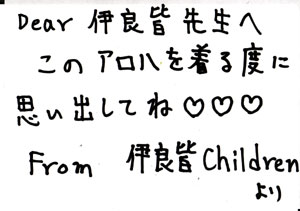 Dear 伊良皆先生へ
このアロハを着る度に
思い出してね♡♡♡
From 伊良皆Children
より